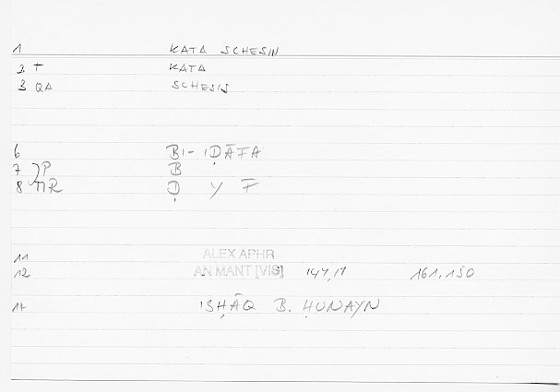 1 KATA SCHESIN
2 T KATA
3 QA SCHESIS
6 BI-IḌĀFA
7 P B
8 NR Ḍ Y F
11 ALEX APHR
12 AN MANT [VIS] 144,17 161,150
17 ISḤĀQ B. ḤUNAYN